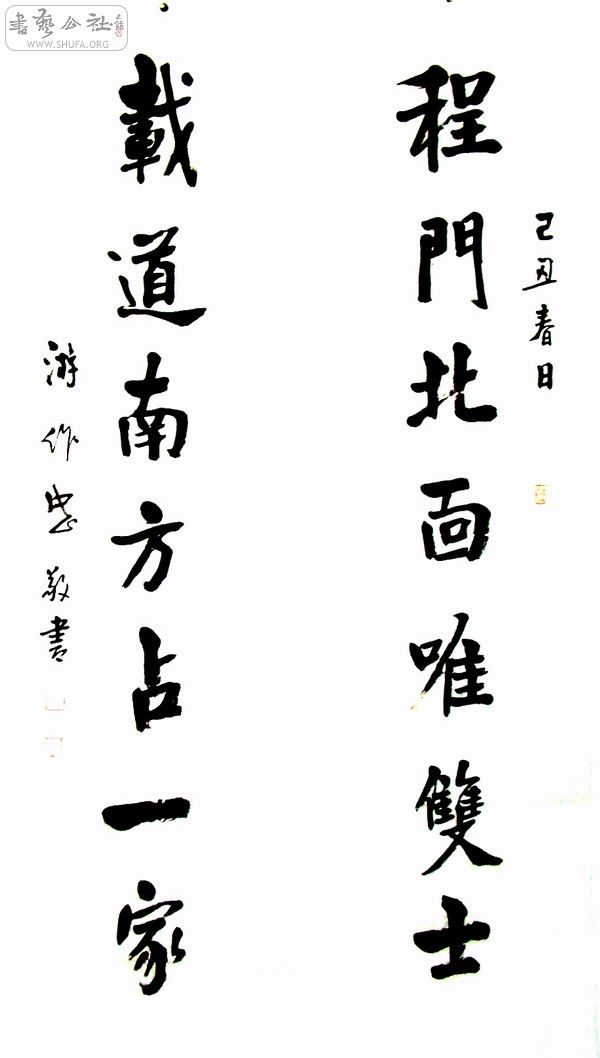 書藝公社
WWW.SHUFA.ORG
己丑春日
程門北面唯雙士
載道南方占一家
游作忠敬書